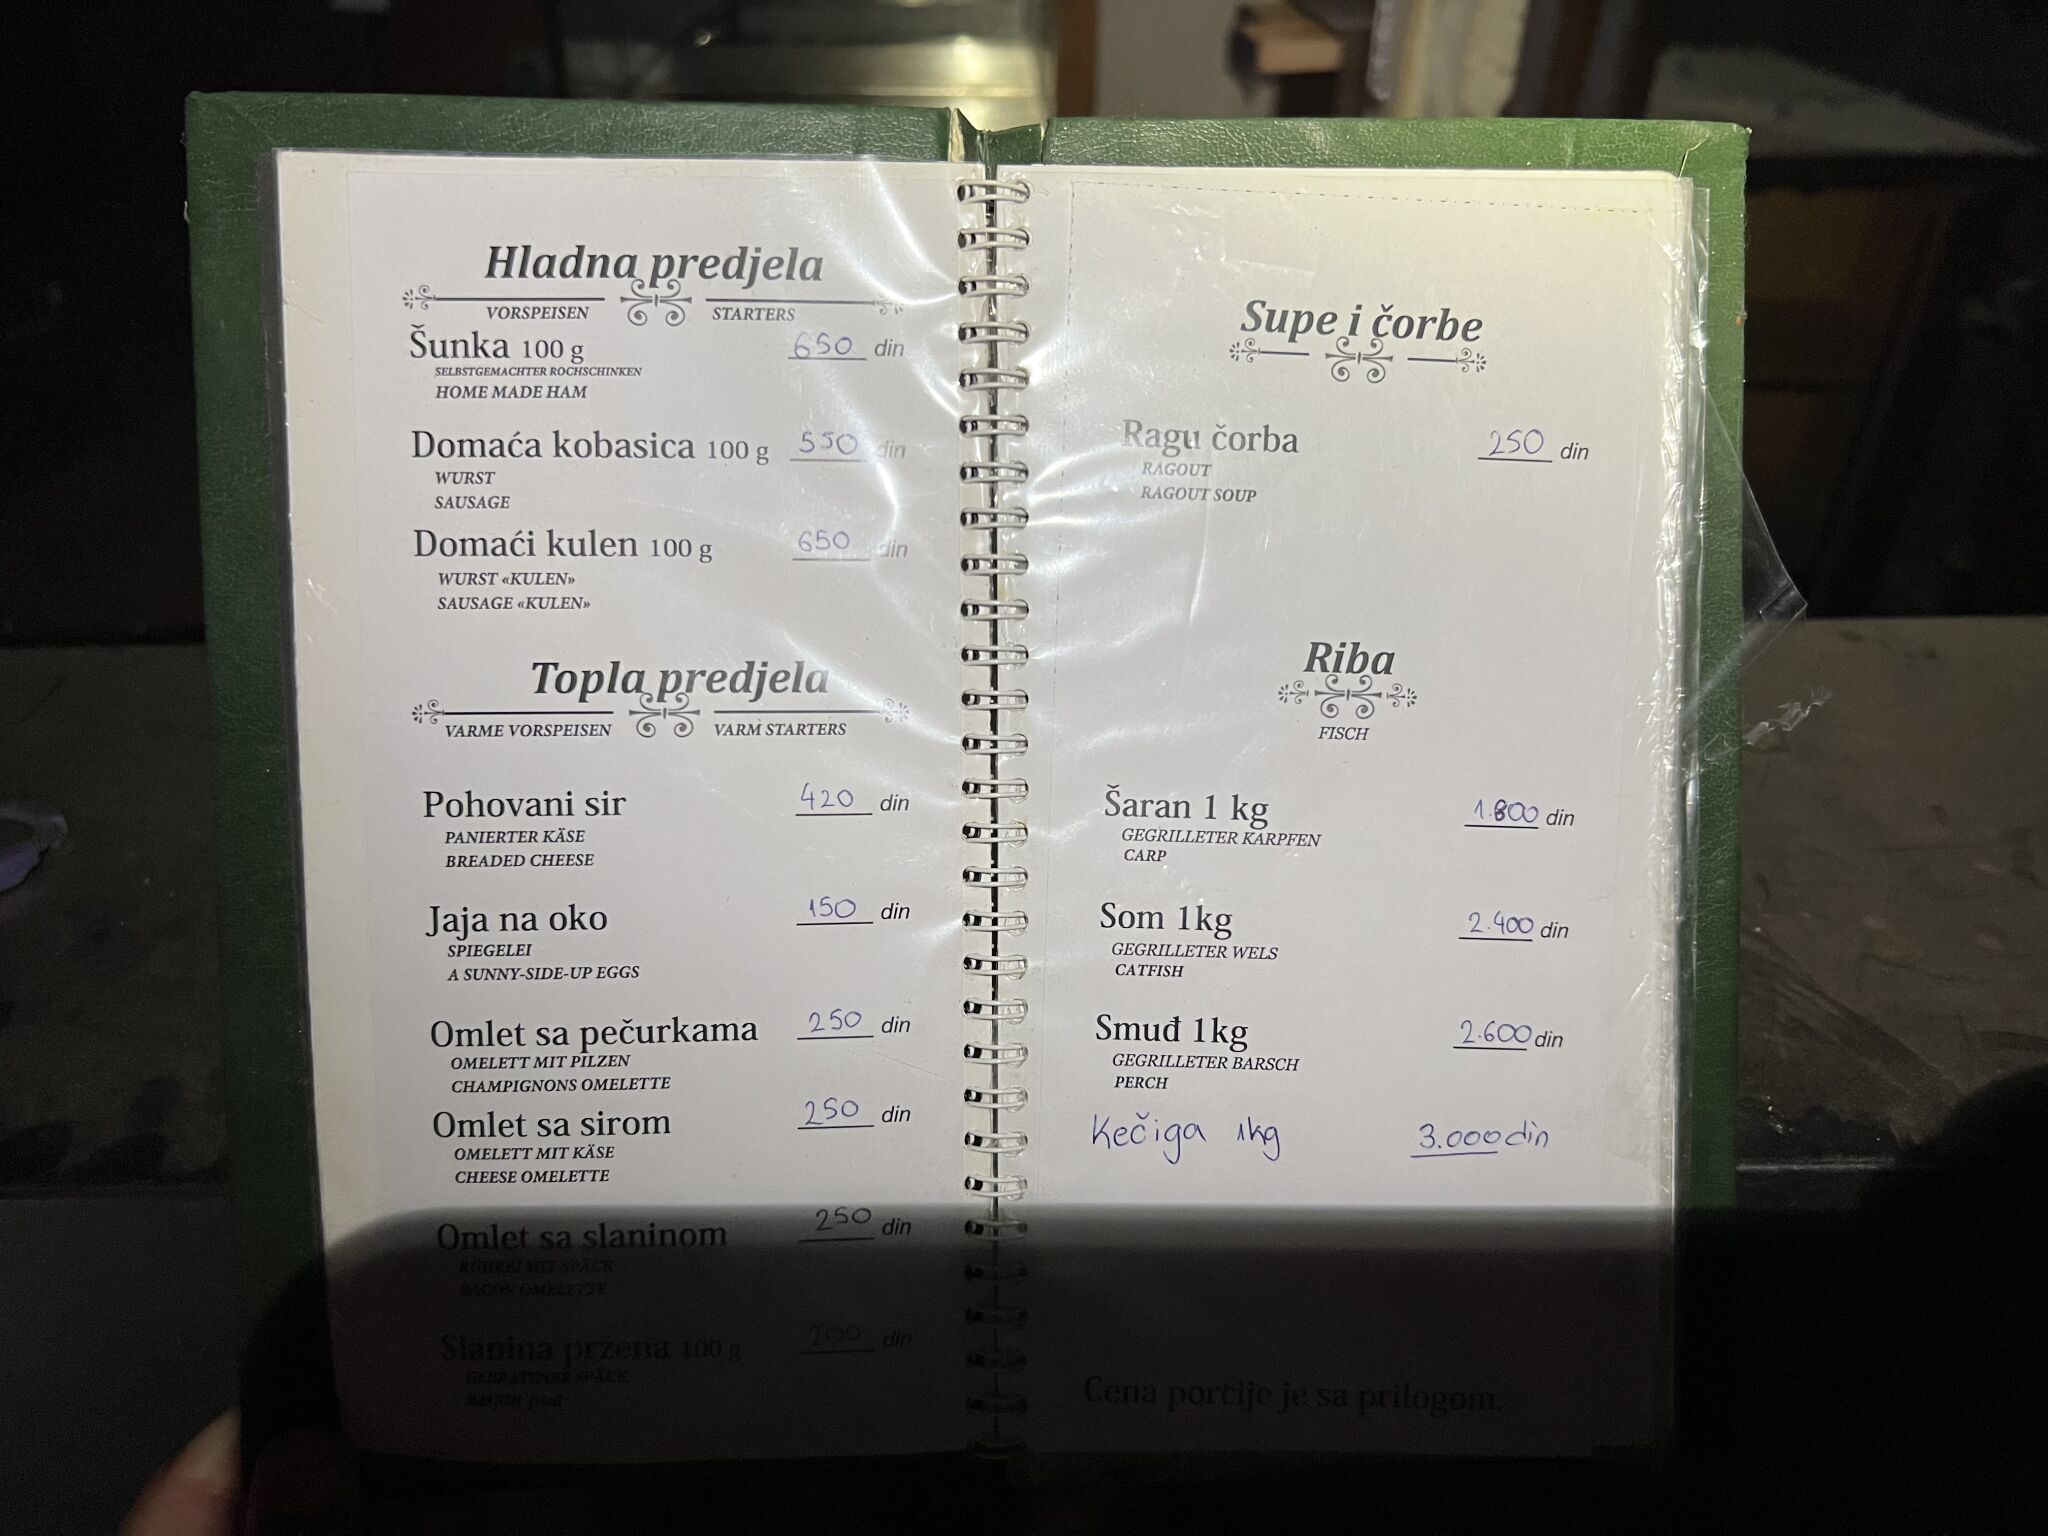 Hladna predjela
VORSPEISEN STARTERS
Šunka 100 g 650 din
SELBSTGEMACHTER ROCHSCHINKEN
HOME MADE HAM
Domaća kobasica 100 g 550 din
WURST
SAUSAGE
Domaći kulen 100 g 650 din
WURST «KULEN»
SAUSAGE «KULEN»
Topla predjela
VARME VORSPEISEN VARM STARTERS
Pohovani sir 420 din
PANIERTER KÄSE
BREADED CHEESE
Jaja na oko 150 din
SPIEGELEI
A SUNNY-SIDE-UP EGGS
Omlet sa pečurkama 250 din
OMELETT MIT PILZEN
CHAMPIGNONS OMELETTE
Omlet sa sirom 250 din
OMELETT MIT KÄSE
CHEESE OMELETTE
Omlet sa slaninom 250 din
RÜHREI MIT SPÄCK
BACON OMELETTE
Slanina pržena 100 g 200 din
GEBRATENER SPÄCK
fried
Supe i čorbe
Ragu čorba 250 din
RAGOUT
RAGOUT SOUP
Riba
FISCH
Šaran 1 kg 1.800 din
GEGRILLETER KARPFEN
CARP
Som 1kg 2.400 din
GEGRILLETER WELS
CATFISH
Smuđ 1kg 2.600 din
GEGRILLETER BARSCH
PERCH
Kečiga 1kg 3.000 din
Cena porcije je sa prilogom.